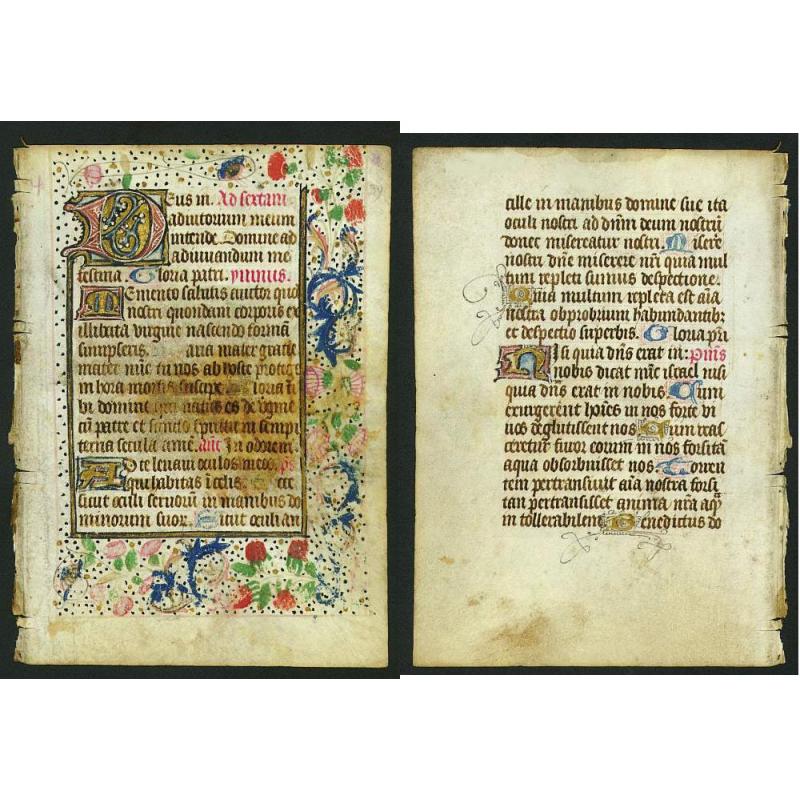 Deus in. Ad sextam
adiutorium meum
intende. Domine ad
adiuuandum me
festina. Gloria patri. ymnus.
Memento salutis auctor quod
nostri quondam corporis ex
illibata virgine nascendo formam
sumpseris. Maria mater gratie
mater mie tu nos ab hoste protege
in hora mortis suscipe. Gloria ti
bi domine qui natus es de virgine
cu patre et sancto spiritu in sempi
terna secula ame. ant In odorem.
Ad te leuaui oculos meos. ps
qui habitas i celis. Ecce
sicut oculi seruorum in manibus do
minorum suor. Sicut oculi an
cille in manibus domine sue ita
oculi nostri ad dnm deum nostru
donec misereatur nostri. Misere
nostri dne miserere nri quia mul
tum repleti sumus despectione.
Quia multum repleta est aia
nostra obprobrium habundantib
et despectio superbis. Gloria pri
Nisi quia dns erat in: psms
nobis dicat nunc israel nisi
quia dns erat in nobis Cum
exurgerent hoies in nos forte vi
uos deglutissent nos Cum iras
ceretur furor eorum in nos forsita
aqua obsorbuisset nos Torren
tem pertransiuit aia nostra forsi
tan pertransisset anima nra aqua
in tollerabilem Benedictus do